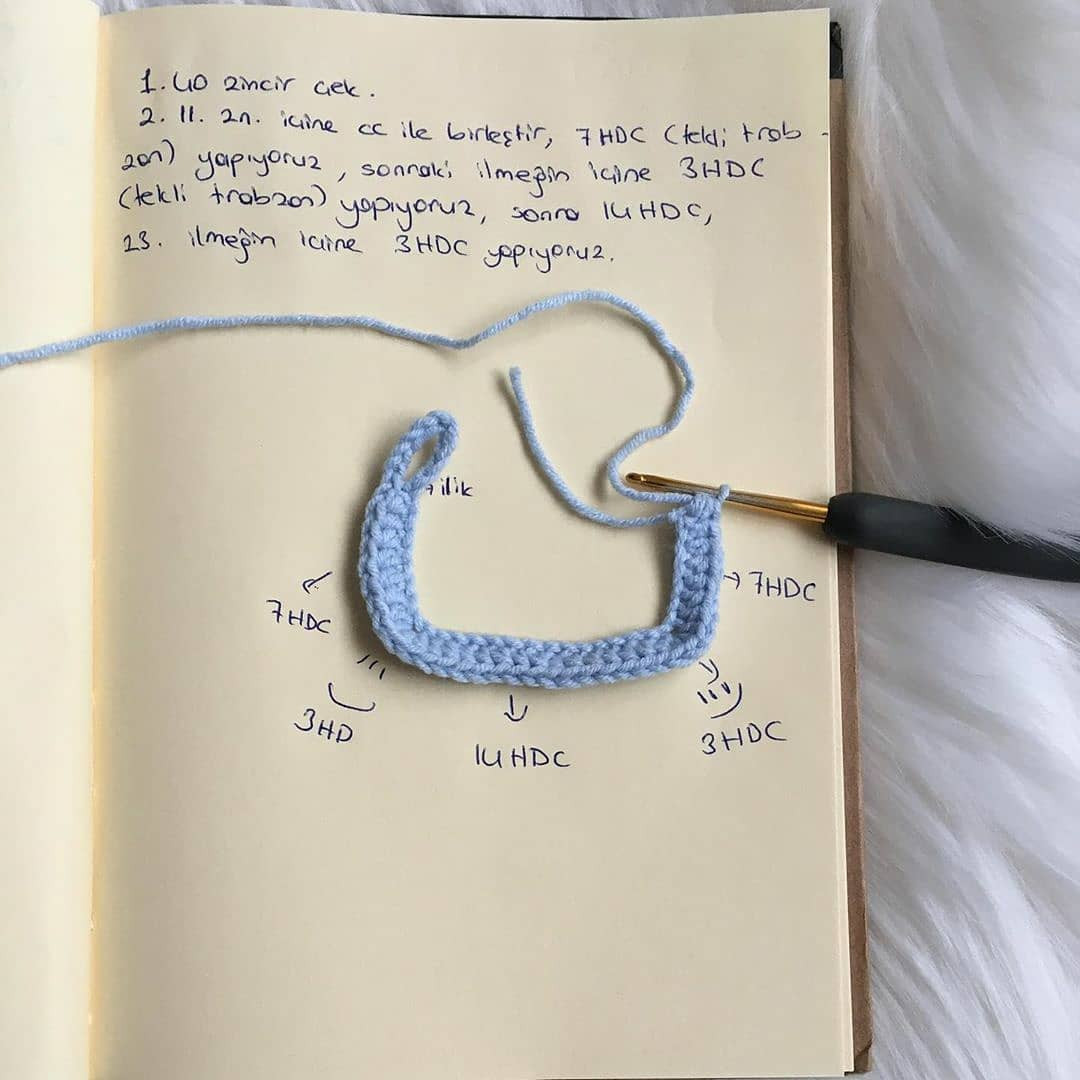 1. 40 zincir çek.
2. 11. zn. içine cc ile birleştir, 7 HDC (tekli trab-
zon) yapıyoruz, sonraki ilmeğin içine 3HDC
(tekli trabzon) yapıyoruz, sonra 14 HDC,
23. ilmeğin içine 3HDC yapıyoruz.
→ ilik
7HDC
→ 7HDC
3HD
14 HDC
3HDC